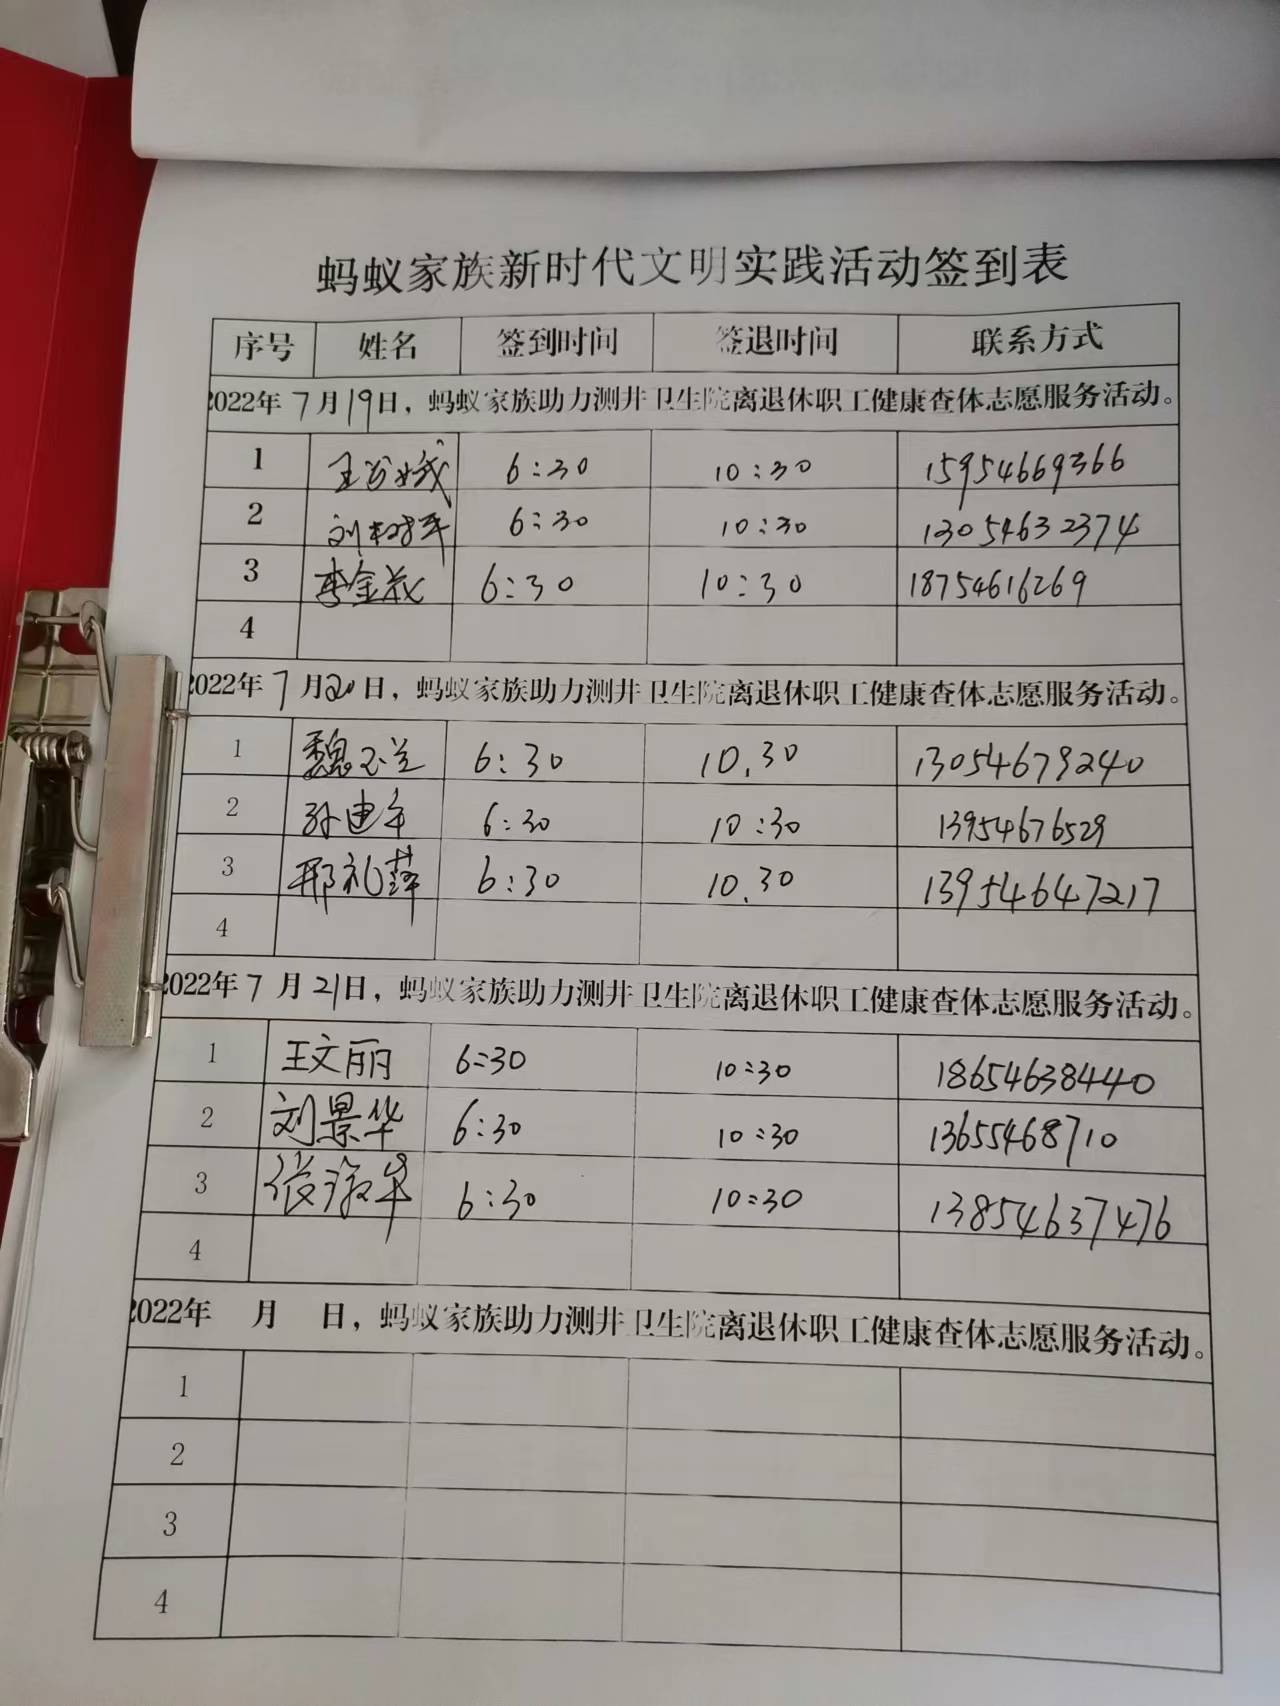 蚂蚁家族新时代文明实践活动签到表
序号 姓名 签到时间 签退时间 联系方式
2022年7月19日，蚂蚁家族助力测井卫生院离退休职工健康查体志愿服务活动。
1 6:30 10:30 15954669366
2 刘树平 6:30 10:30 13054632374
3 李金 6:30 10:30 18754616269
4
2022年7月20日，蚂蚁家族助力测井卫生院离退休职工健康查体志愿服务活动。
1 魏玉兰 6:30 10.30 13054679240
2 孙建军 6:30 10:30 13954676529
3 邢礼萍 6:30 10.30 13954647217
4
2022年7月21日，蚂蚁家族助力测井卫生院离退休职工健康查体志愿服务活动。
1 王文丽 6:30 10:30 18654638440
2 刘景华 6:30 10:30 13655468710
3 张 华 6:30 10:30 13854637476
4
2022年 月 日，蚂蚁家族助力测井卫生院离退休职工健康查体志愿服务活动。
1
2
3
4